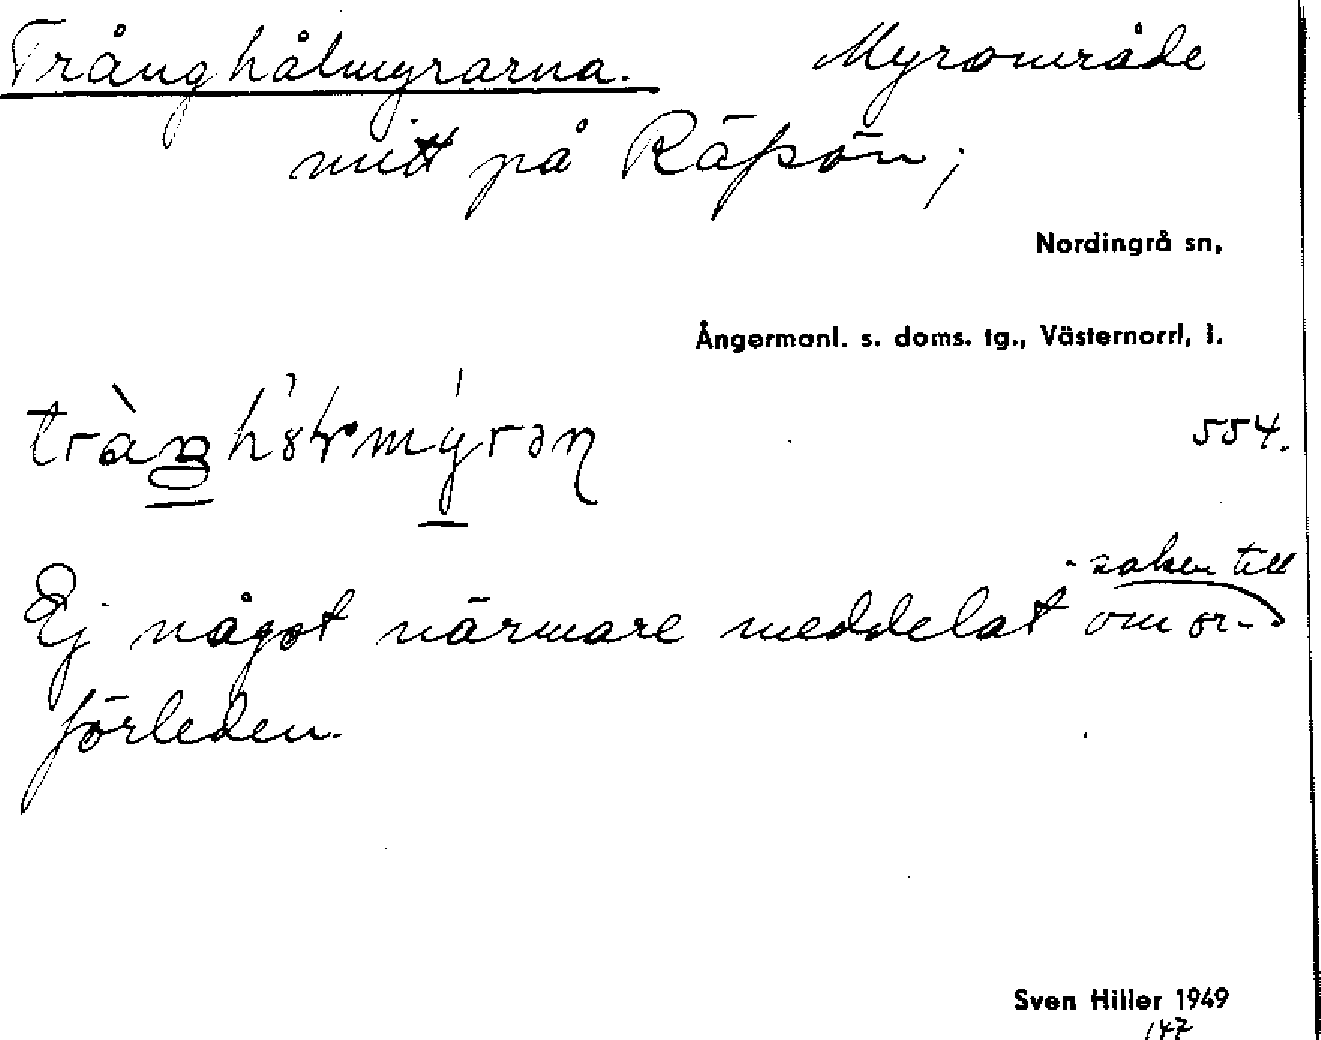 Trånghålmyrarna. Myrområde
mitt på Räpön;
Nordingrå sn,
Ångermanl. s. doms. tg., Västernorrl. l.
554.
Ej något närmare meddelat om or-
saken till
förleden.
Sven Hiller 1949
147